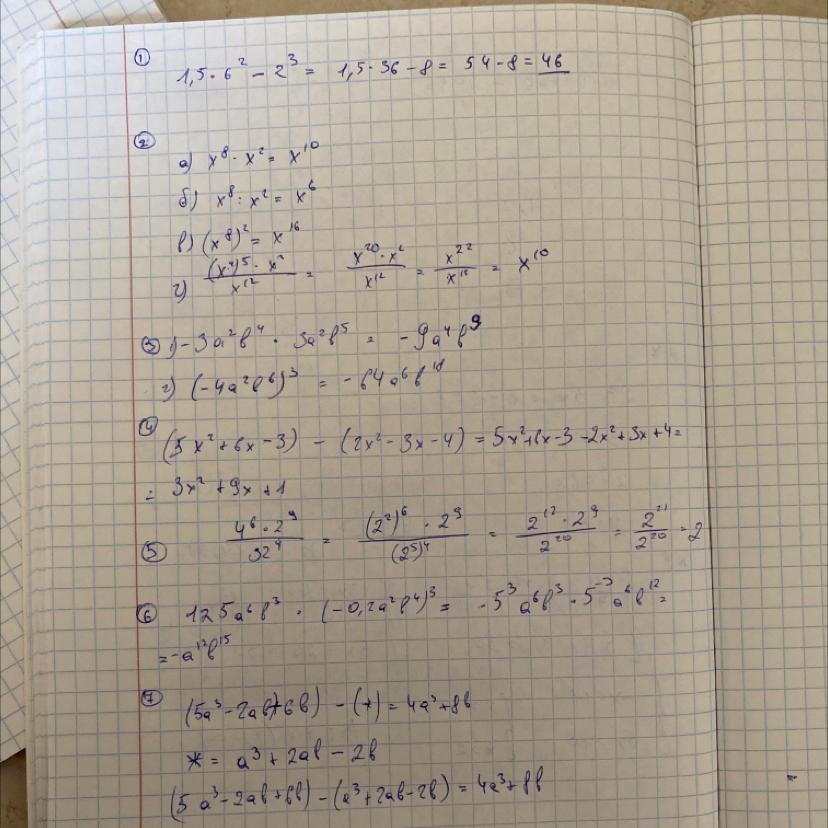 ① 1,5·6² − 2³ = 1,5·36 − 8 = 54 − 8 = 46
②
а) x⁸ · x² = x¹⁰
б) x⁸ : x² = x⁶
в) (x⁸)² = x¹⁶
г) (x⁴)⁵ · x² / x¹² = x²⁰ · x² / x¹² = x²² / x¹² = x¹⁰
③ 1) −3a²b⁴ · 3a²b⁵ = −9a⁴b⁹
2) (−4a²b⁶)³ = −64a⁶b¹⁸
④ (5x² + 6x − 3) − (2x² − 3x − 4) = 5x² + 6x − 3 − 2x² + 3x + 4 =
= 3x² + 9x + 1
⑤ 4⁶ · 2⁹ / 32⁴ = (2²)⁶ · 2⁹ / (2⁵)⁴ = 2¹² · 2⁹ / 2²⁰ = 2²¹ / 2²⁰ = 2
⑥ 125a⁶b³ · (−0,2a²b⁴)³ = −5³a⁶b³ · 5⁻³a⁶b¹² =
= −a¹²b¹⁵
⑦ (5a³ − 2ab + 6b) − (*) = 4a³ + 8b
* = a³ + 2ab − 2b
(5a³ − 2ab + 6b) − (a³ + 2ab − 2b) = 4a³ + 8b